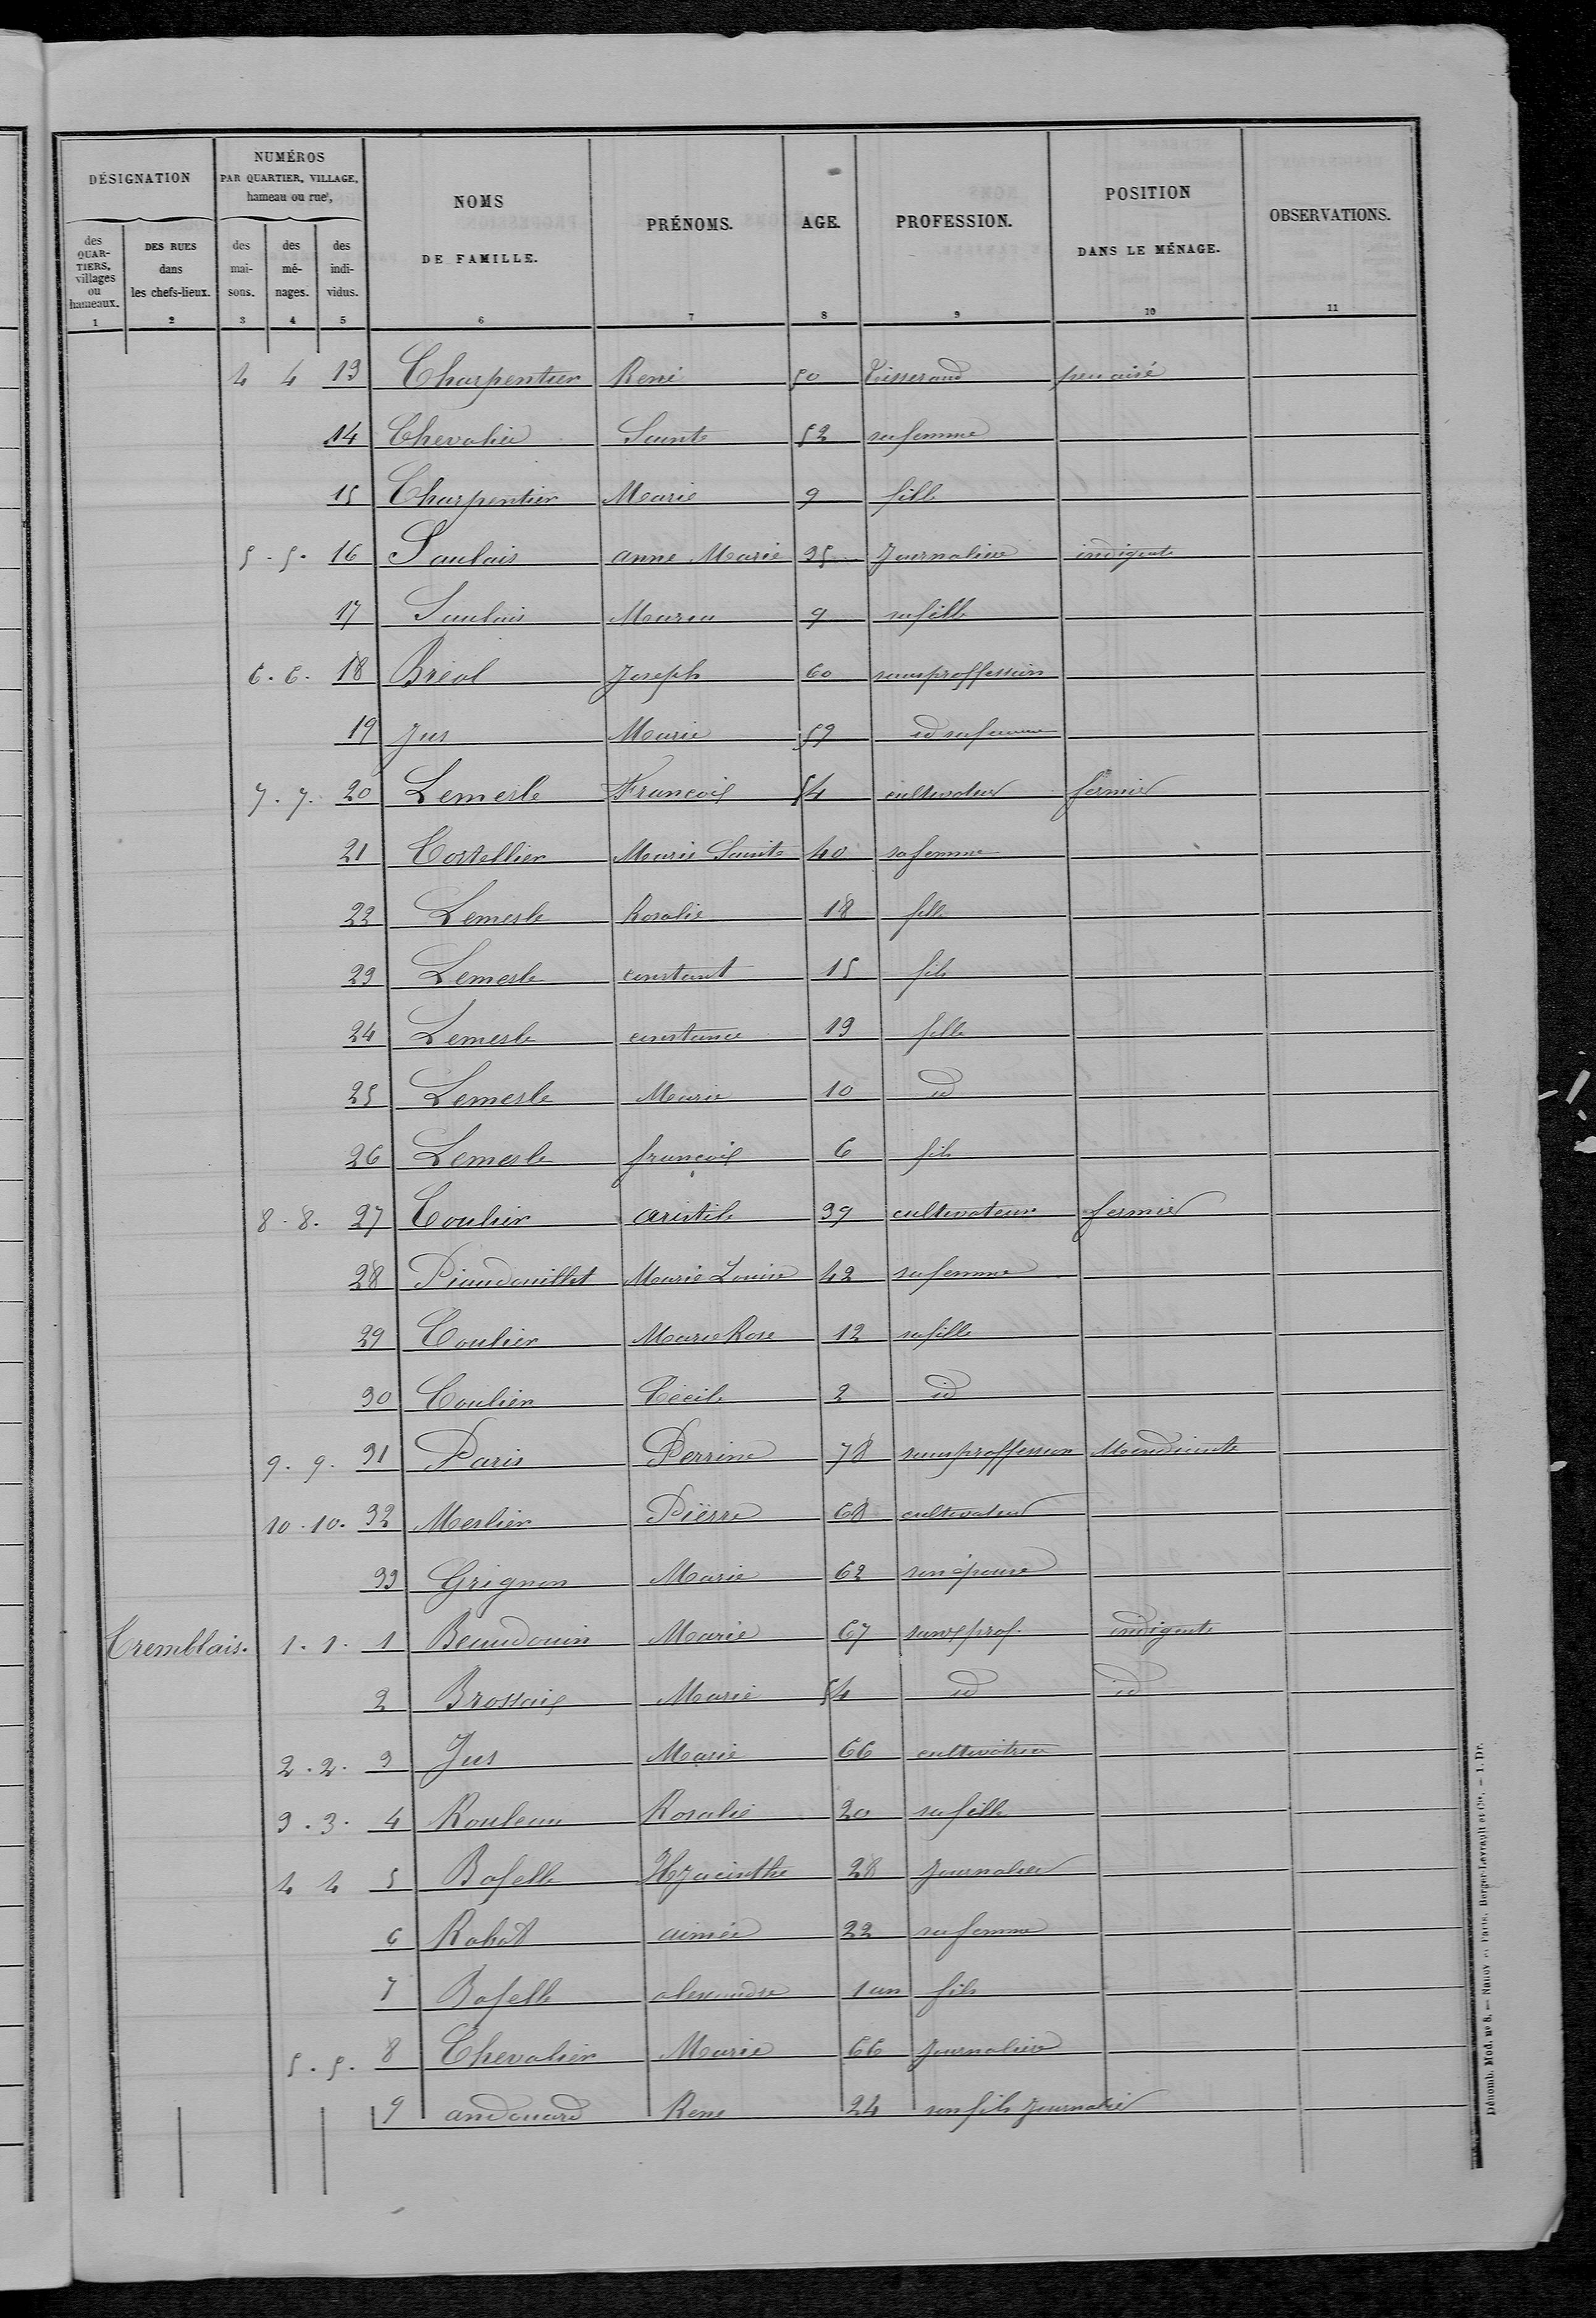 DÉSIGNATION
NUMÉROS PAR QUARTIER, VILLAGE, hameau ou rue,
NOMS DE FAMILLE.
PRÉNOMS.
AGE.
PROFESSION.
POSITION DANS LE MÉNAGE.
OBSERVATIONS.
des QUARTIERS, villages ou hameaux.
DES RUES dans les chefs-lieux.
des maisons.
des ménages.
des individus.
1 2 3 4 5 6 7 8 9 10 11
4 4 13 Charpentier René 50 Tisserand peu aisé
14 Chevalier Sainte 52 sa femme
15 Charpentier Marie 9 fille
5 . 5 . 16 Saulais anne Marie 35 Journalière indigente
17 Saulais Maria 9 sa fille
6 . 6 . 18 Bréal Joseph 60 sans proffession
19 Jus Marie 59 id sa femme
7 . 7 . 20 Lemesle François 54 cultivateur fermier
21 Cortellier Marie Sainte 40 sa femme
22 Lemesle Rosalie 18 fille
23 Lemesle constant 15 fils
24 Lemesle constance 13 fille
25 Lemesle Marie 10 id
26 Lemesle françois 6 fils
8 . 8 . 27 Coulier aristile 39 cultivateur fermier
28 Piaudouillet Marie Louise 42 sa femme
29 Coulier Marie Rose 12 sa fille
30 Coulier Cécile 2 id
9 . 9 . 31 Paris Perrine 78 sans proffession Mendiante
10 . 10 . 32 Merlier Pierre 68 cultivateur
33 Grignon Marie 62 son épouse
Tremblais. 1 . 1 . 1 Beaudouin Marie 67 sans prof. indigente
2 Brossais Marie 54 id id
2 . 2 . 3 Jus Marie 66 cultivatrice
3 . 3 . 4 Rouleau Rosalie 20 sa fille
4 4 5 Bafelle Hyacinthe 28 Journalier
6 Rabot aimée 22 sa femme
7 Bafelle alexandre 1 an fils
5 . 5 . 8 Chevalier Marie 66 Journalière
9 andouard Rene 24 son fils Journalier
Dénomb. Mod. nº 8. — Nancy et Paris, Berger-Levrault et Cie. — 1. Dr.